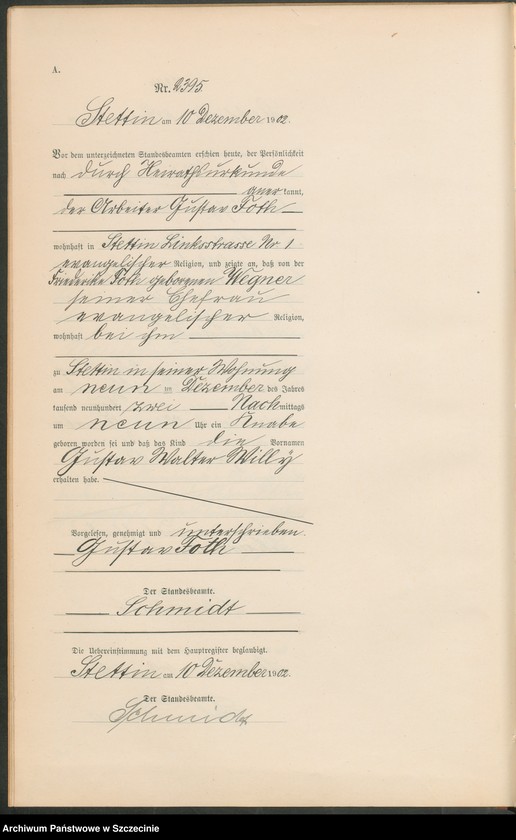 A.
Nr. 2395
Stettin am 10 Dezember 1902.
Vor dem unterzeichneten Standesbeamten erschien heute, der Persönlichkeit
nach durch Heirathsurkunde
aner kannt,
der Arbeiter Gustav Foth
wohnhaft in Stettin Linksstrasse Nr 1
evangelischer Religion, und zeigte an, daß von der
Friederike Foth geborenen Wegner
seiner Ehefrau
evangelischer Religion,
wohnhaft bei ihm
zu Stettin in seiner Wohnung
am neun ten Dezember des Jahres
tausend neunhundert zwei Nach mittags
um neun Uhr ein Knabe
geboren worden sei und daß das Kind die Vornamen
Gustav Walter Willy
erhalten habe.
Vorgelesen, genehmigt und unterschrieben.
Gustav Foth
Der Standesbeamte.
Schmidt
Die Uebereinstimmung mit dem Hauptregister beglaubigt.
Stettin am 10 Dezember 1902.
Der Standesbeamte.
Schmidt
Archiwum Państwowe w Szczecinie